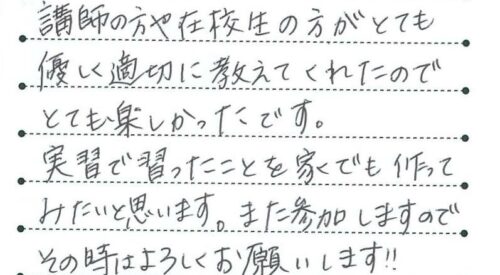 講師の方や在校生の方がとても
優しく適切に教えてくれたので
とても楽しかったです。
実習で習ったことを家でも作って
みたいと思います。また参加しますので
その時はよろしくお願いします!!